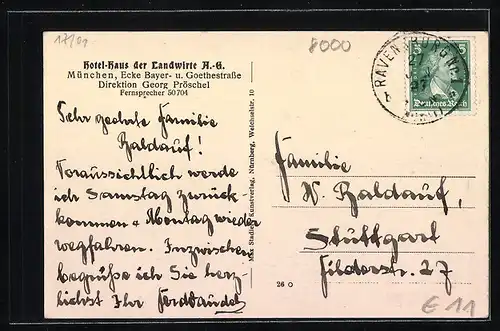 17/01
8000
Hotel-Haus der Landwirte A.-G.
München, Ecke Bayer- u. Goethestraße
Direktion Georg Pröschel
Fernsprecher 50704
RAVENSBURG
5
Deutsches Reich
Sehr geehrte Familie
Baldauf!
Voraussichtlich werde
ich Samstag zurück-
kommen + Montag wieder
wegfahren. Inzwischen
begrüße ich Sie herz-
lichst Ihr
Kunstverlag, Nürnberg, Welchselstr. 10
Familie
W. Baldauf,
Stuttgart
Filderstr. 27
26 O
€ 11